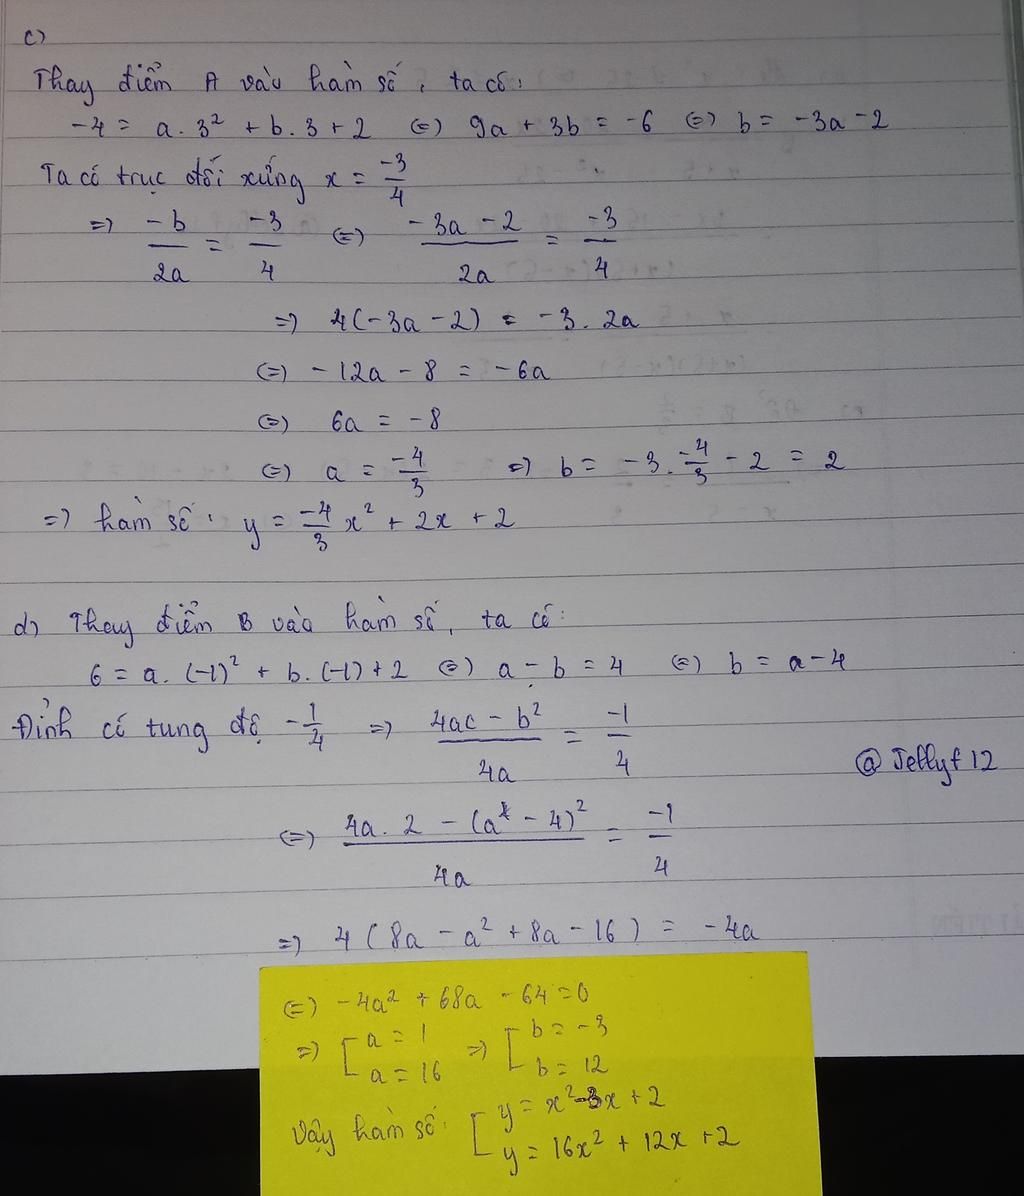 c)
Thay điểm A vào hàm số, ta có:
-4 = a. 3² + b. 3 + 2 (=) 9a + 3b = -6 (=) b = -3a - 2
Ta có trục đối xứng x = -3/4
=) -b/2a = -3/4 (=) -3a - 2/2a = -3/4
=) 4(-3a - 2) = -3. 2a
(=) -12a - 8 = -6a
(=) 6a = -8
(=) a = -4/3 =) b = -3. -4/3 - 2 = 2
=) hàm số: y = -4/3 x² + 2x + 2
d) Thay điểm B vào hàm số, ta có:
6 = a. (-1)² + b. (-1) + 2 (=) a - b = 4 (=) b = a - 4
Đỉnh có tung độ -1/4 =) 4ac - b²/4a = -1/4
@Jellyf12
(=) 4a. 2 - (a - 4)²/4a = -1/4
=) 4(8a - a² + 8a - 16) = -4a
(=) -4a² + 68a - 64 = 0
=) [a = 1 =) [b = -3
a = 16 b = 12
Vậy hàm số: [y = x² - 3x + 2
y = 16x² + 12x + 2